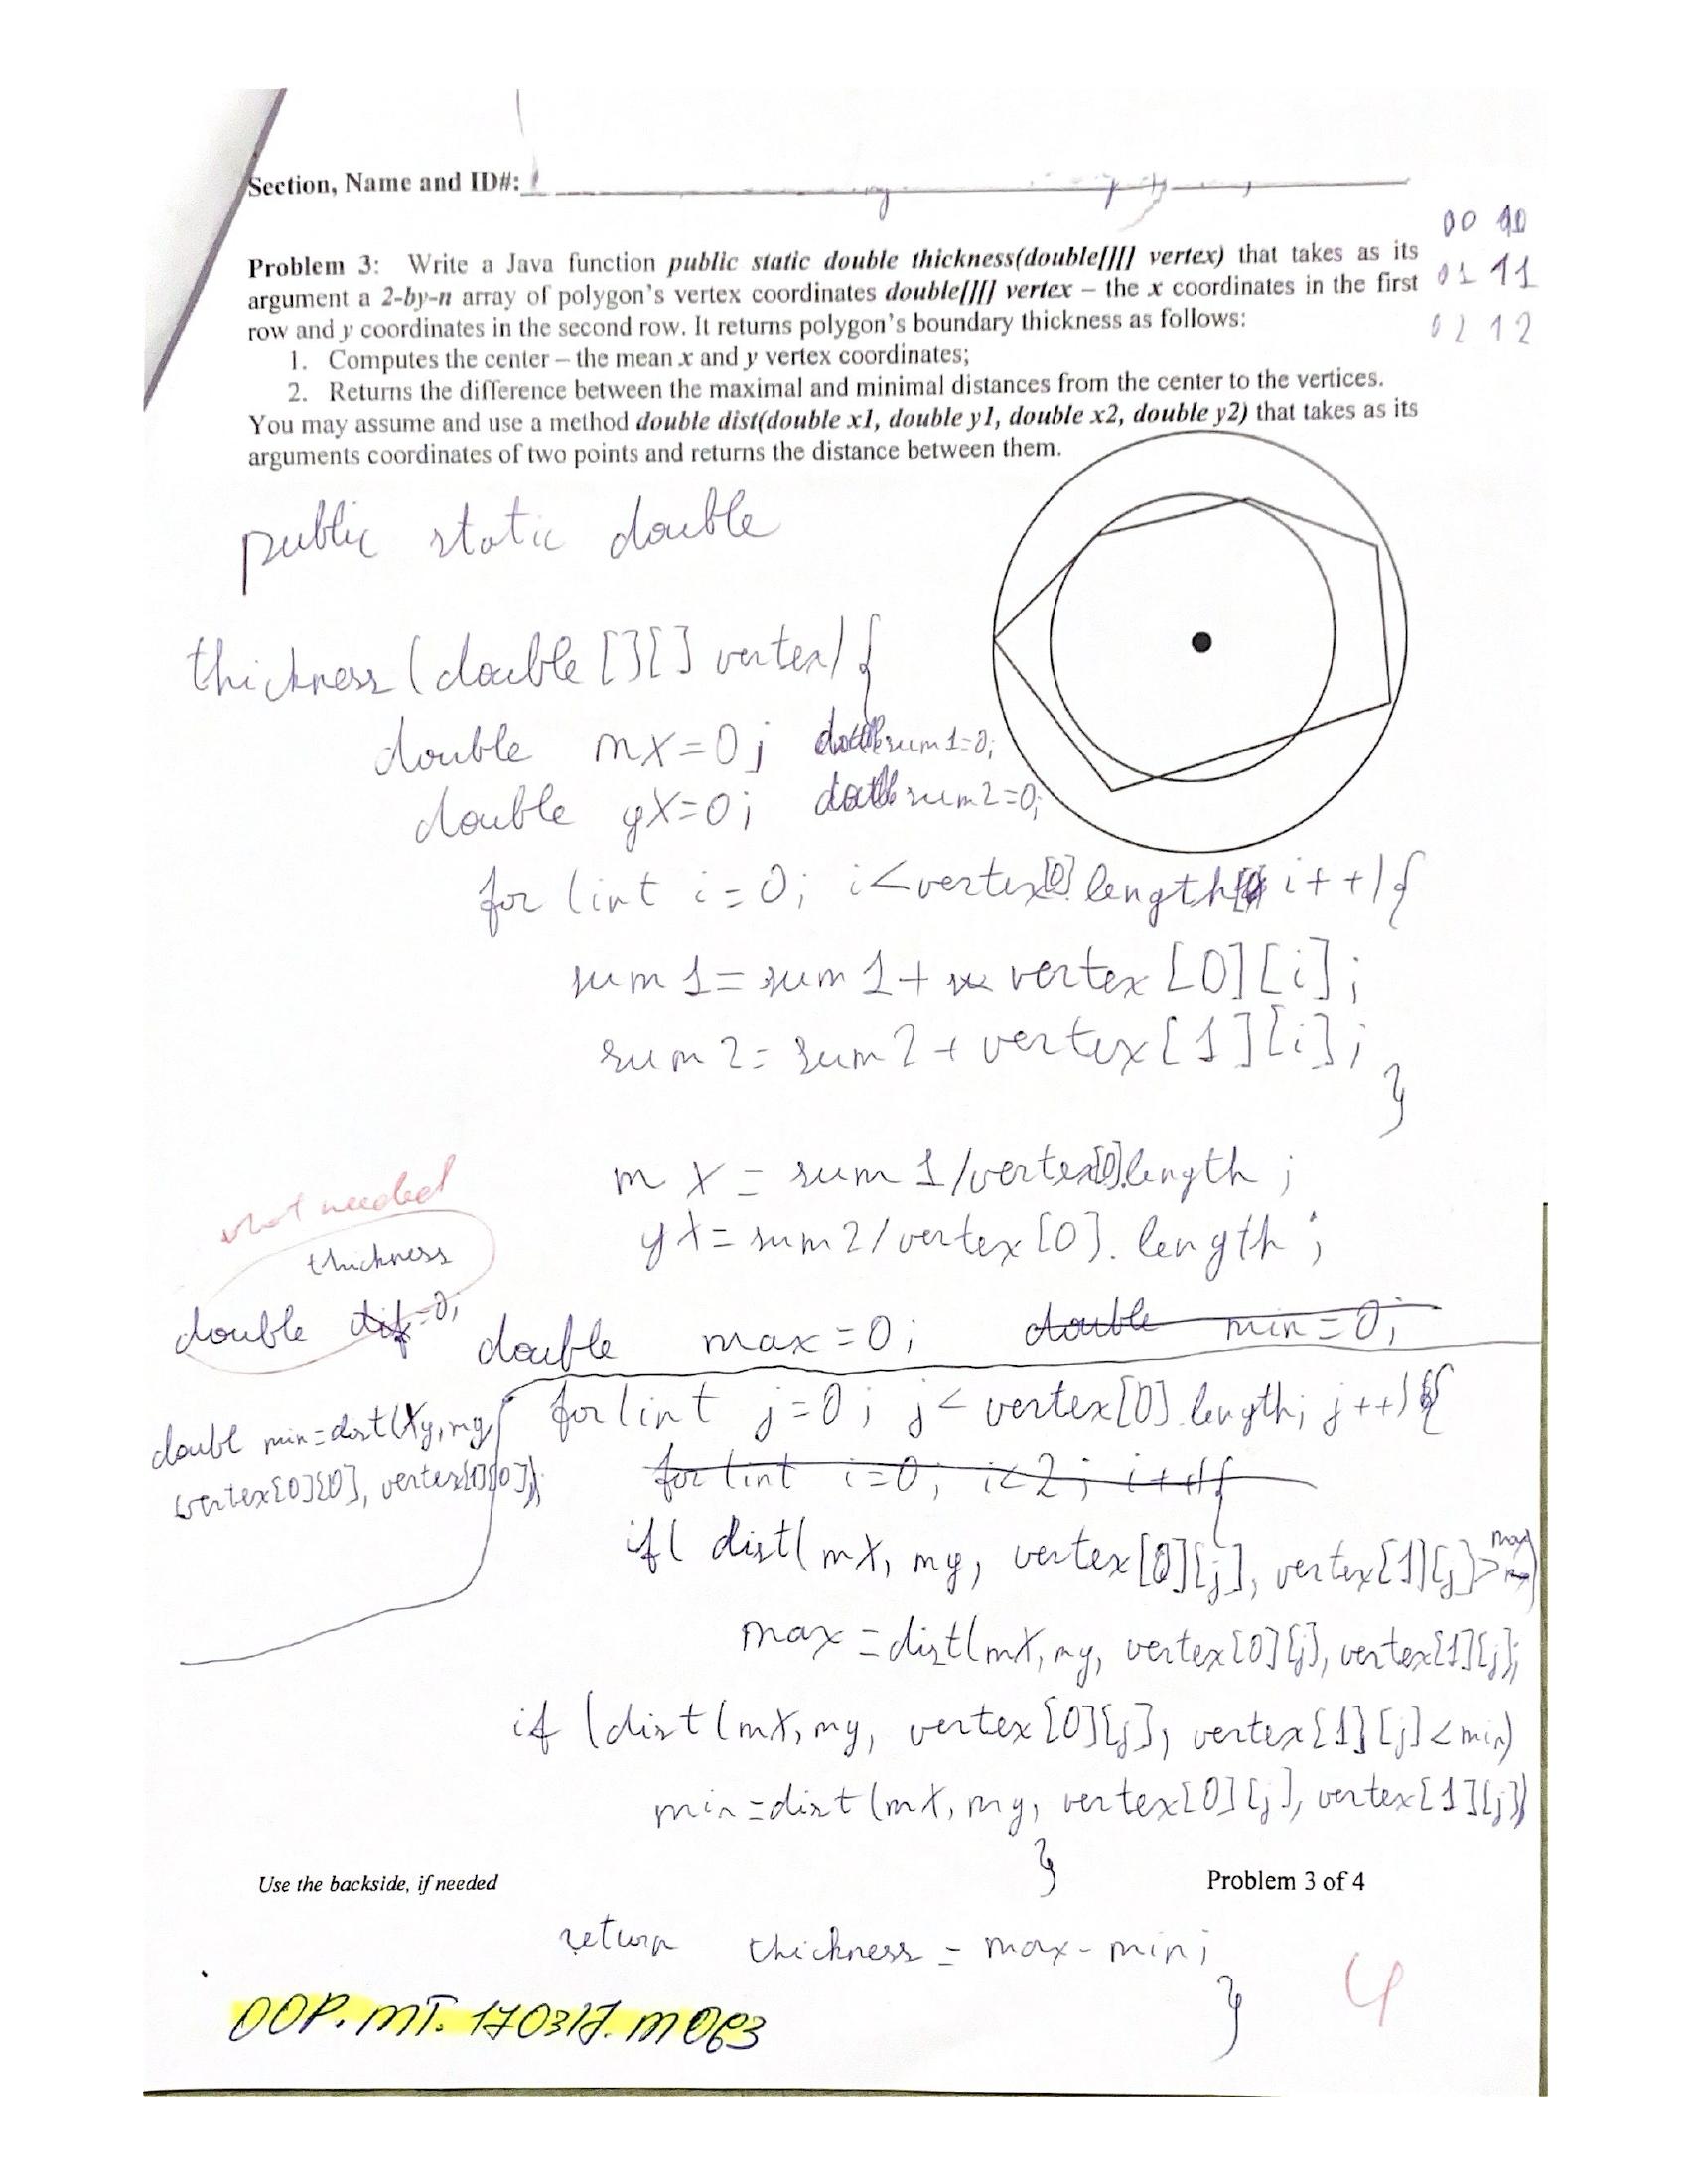 Section, Name and ID#:
00 10
Problem 3: Write a Java function public static double thickness(double[][] vertex) that takes as its
01 11
argument a 2-by-n array of polygon's vertex coordinates double[][] vertex – the x coordinates in the first
row and y coordinates in the second row. It returns polygon's boundary thickness as follows:
02 12
1. Computes the center – the mean x and y vertex coordinates;
2. Returns the difference between the maximal and minimal distances from the center to the vertices.
You may assume and use a method double dist(double x1, double y1, double x2, double y2) that takes as its
arguments coordinates of two points and returns the distance between them.
public static double
thickness (double [][] vertex) {
double mx=0; double sum1=0;
double yx=0; double sum2=0;
for (int i=0; i<vertex[0].length; i++){
sum1=sum1+ vertex[0][i];
sum2=sum2+vertex[1][i];
}
mx = sum1/vertex[0].length;
yx=sum2/vertex[0].length;
not needed
thickness
double dif=0;
double max=0; double min=0;
double min=dist(xy,my,
vertex[0][0], vertex[1][0]);
for(int j=0; j< vertex[0].length; j++){
for(int i=0; i<2; i++){
if( dist(mx, my, vertex[0][j], vertex[1][j]>max)
max=dist(mx,my, vertex[0][j], vertex[1][j];
if (dist(mx,my, vertex[0][j], vertex[1][j]<min)
min=dist(mx, my, vertex[0][j], vertex[1][j])
}
Use the backside, if needed
Problem 3 of 4
return thickness = max-min;
}
4
OOP.MT.170317.M063